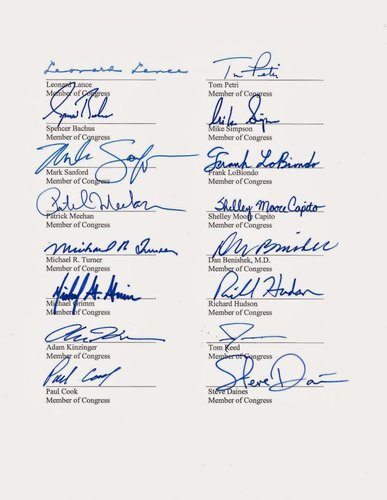 Leonard Lance
Leonard Lance
Member of Congress
Tom Petri
Tom Petri
Member of Congress
Spencer Bachus
Spencer Bachus
Member of Congress
Mike Simpson
Mike Simpson
Member of Congress
Mark Sanford
Mark Sanford
Member of Congress
Frank LoBiondo
Frank LoBiondo
Member of Congress
Patrick Meehan
Patrick Meehan
Member of Congress
Shelley Moore Capito
Shelley Moore Capito
Member of Congress
Michael R. Turner
Michael R. Turner
Member of Congress
Dan Benishek
Dan Benishek, M.D.
Member of Congress
Michael Grimm
Member of Congress
Richard Hudson
Richard Hudson
Member of Congress
Adam Kinzinger
Member of Congress
Tom Reed
Member of Congress
Paul Cook
Paul Cook
Member of Congress
Steve Daines
Steve Daines
Member of Congress